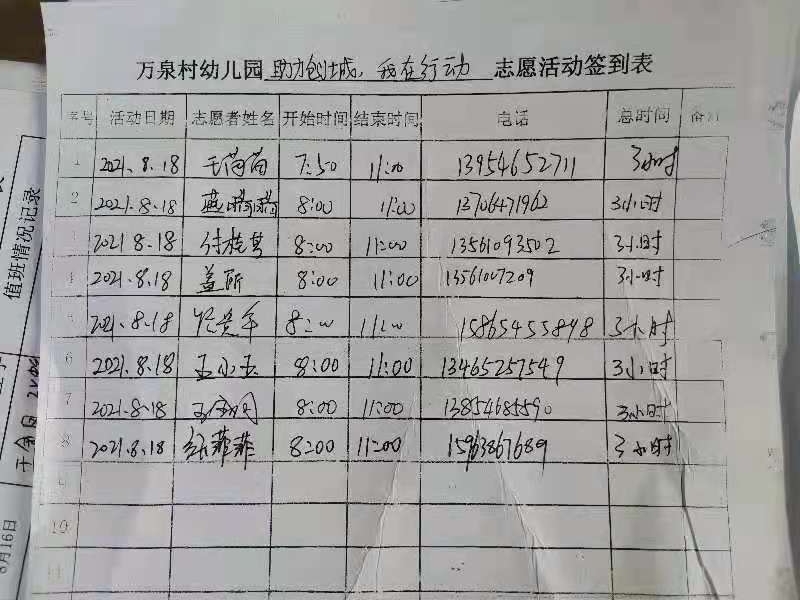 万泉村幼儿园 助力创城,我在行动 志愿活动签到表
序号 活动日期 志愿者姓名 开始时间 结束时间 电话 总时间 备注
1 2021.8.18 7:50 11:00 13954652711 3小时
2 2021.8.18 8:00 11:00 13706471962 3小时
3 2021 8.18 付桂芸 8:00 11:00 13561093502 3小时
4 2021.8.18 盖丽 8:00 11:00 13561007209 3小时
5 2021.8.18 8:00 11:00 15865455898 3小时
6 2021.8.18 王小玉 8:00 11:00 13465257549 3小时
7 2021.8.18 8:00 11:00 13854685590 3小时
8 2021.8.18 菲菲 8:00 11:00 15963867689 3小时
9
10
11
值班情况记录
8月16日